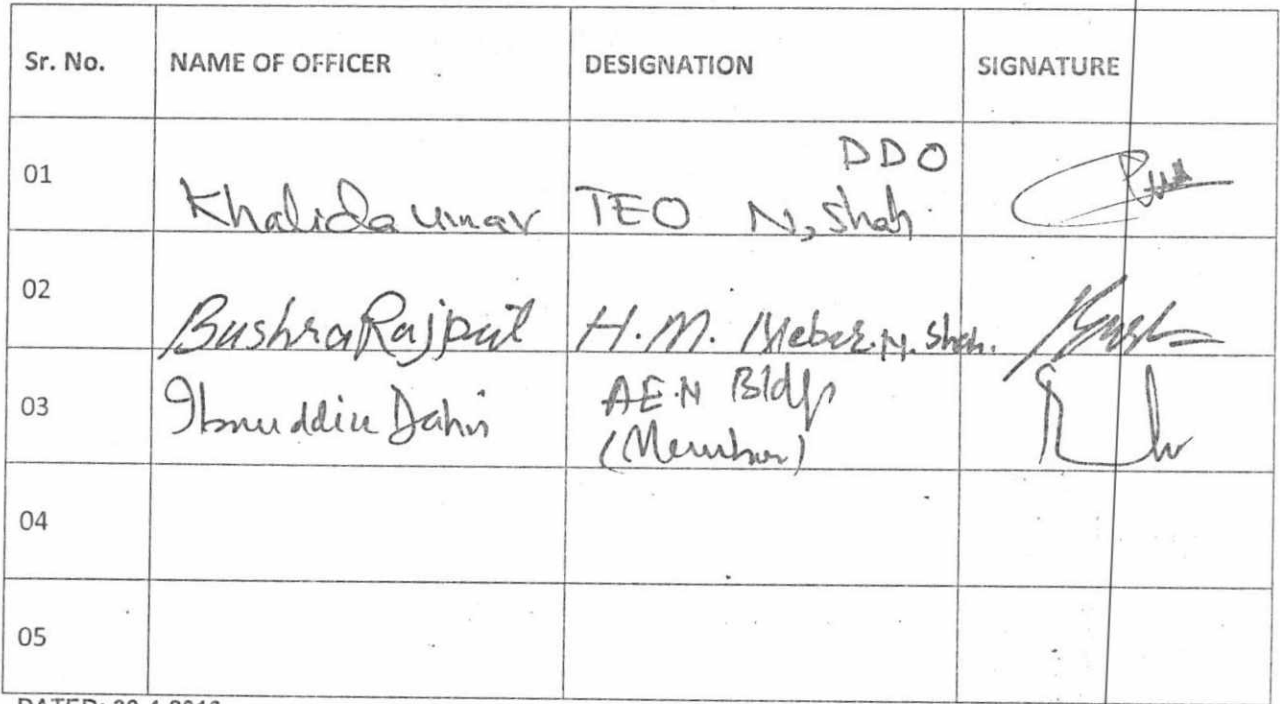 Sr. No. NAME OF OFFICER DESIGNATION SIGNATURE
DDO
01 Khalida umar TEO N, Shah
02 Bushra Rajput H.M. N. Shah.
03 Dahri AEN Bldg
(Member)
04
05
DATED: